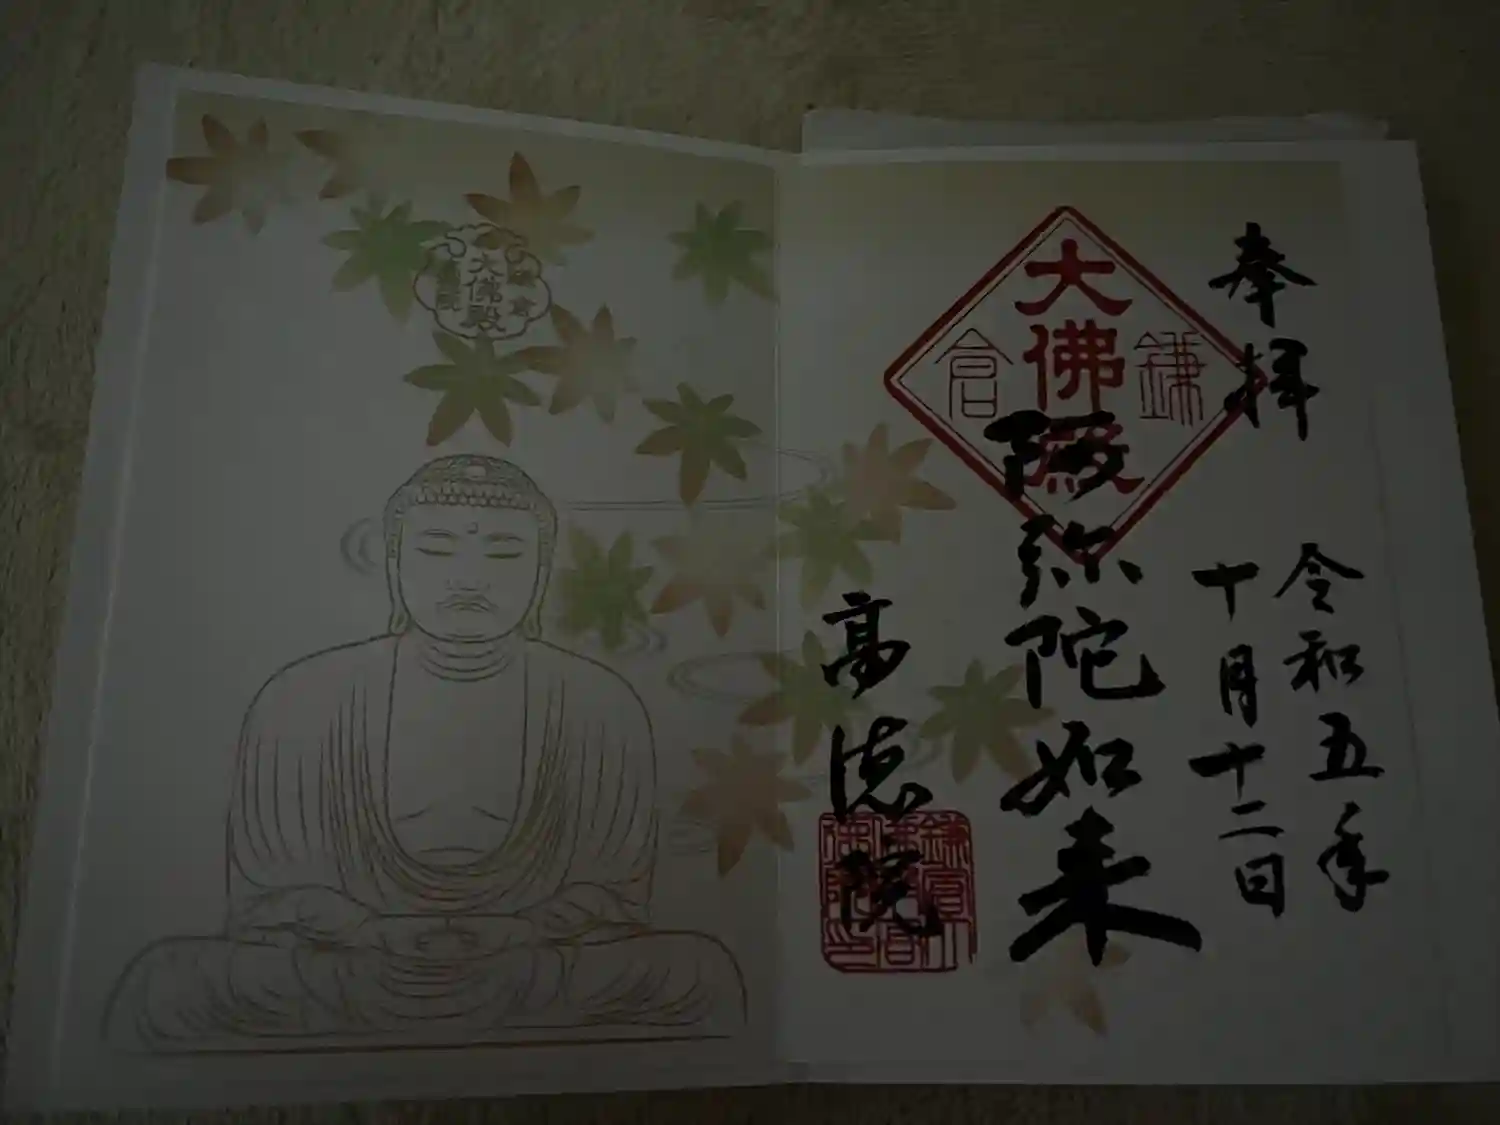 奉拝
令和五年
十月十二日
鎌倉
大佛殿
阿弥陀如来
高徳院
大佛殿